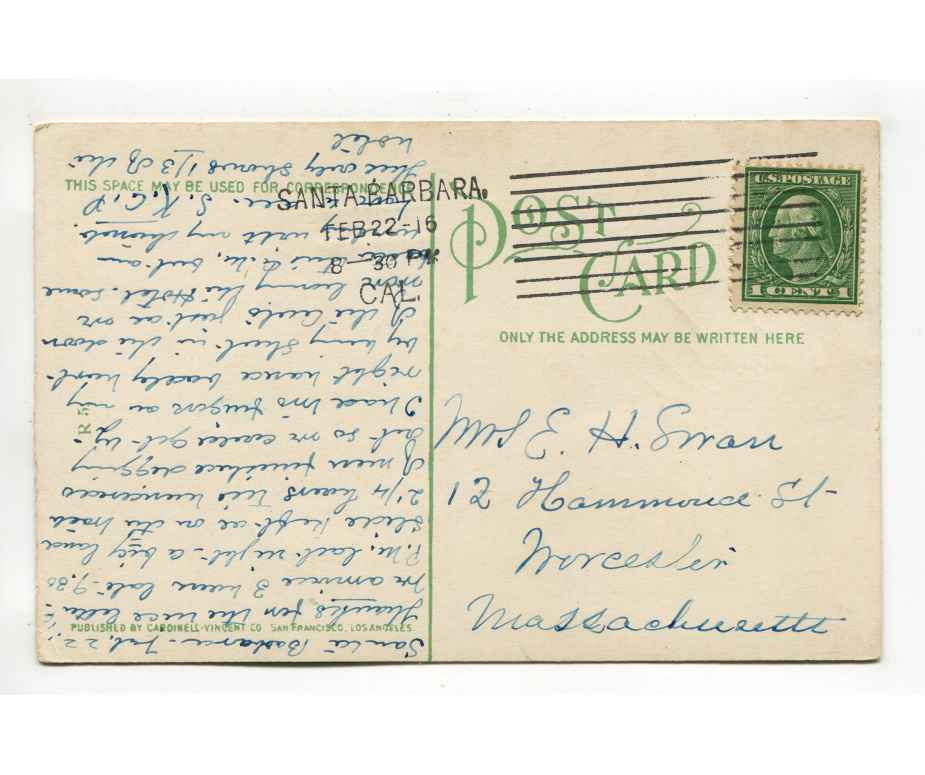 THIS SPACE MAY BE USED FOR CORRESPONDENCE
SANTA BARBARA,
FEB 22-16
8 30 PM
CAL.
POST CARD
U.S. POSTAGE
1 CENT 1
ONLY THE ADDRESS MAY BE WRITTEN HERE
Mrs E. H. Swan
12 Hammond St
Worcester
Massachusetts
R 5
PUBLISHED BY CARDINELL-VINCENT CO. SAN FRANCISCO, LOS ANGELES.
Santa Barbara. Feb. 22
Thanks for the nice letter
We arrived 3 hours late 9.30
P.M. last night - a big land
slide kept us on the train
2 1/4 hours two hundred
of men digging
but so we could get by.
I had two fingers on my
right hand badly hurt
by being shut in the door
of the auto just as we
leaving the Hotel. some
this A.M., but am
with my
S. K. C. P
This only shows 1/3 of the
hotel